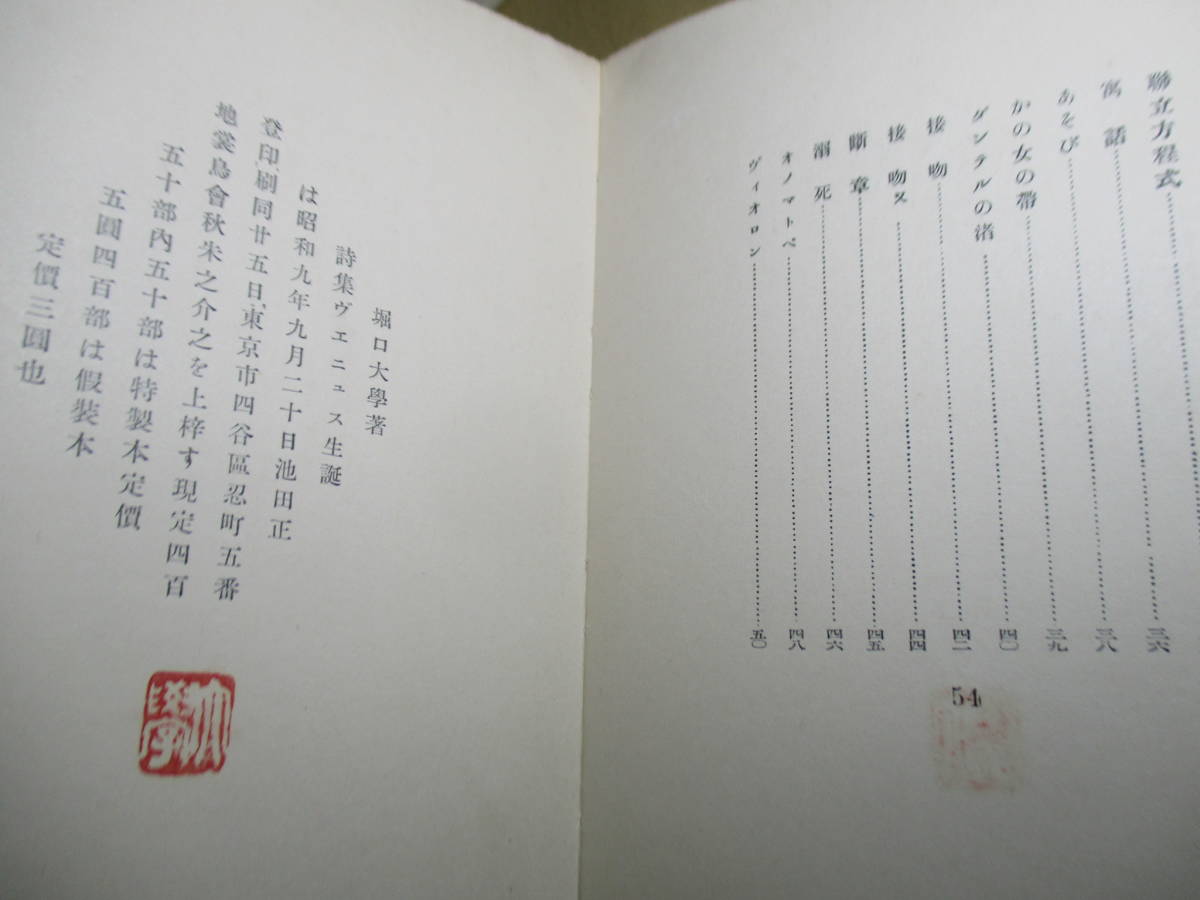 聯立方程式……三六
寓話……三八
あそび……三九
かの女の帶……四〇
ダンテルの渚……四二
接吻……四二
接吻又……四四
斷章……四五
溺死……四六
オノマトペ……四八
ヴィオロン……五〇
54
堀口大學著
詩集ヴェニュス生誕
は昭和九年九月二十日池田正
登印刷同廿五日、東京市四谷區忍町五番
地裳鳥會秋朱之介之を上梓す現定四百
五十部内五十部は特製本定價
五圓四百部は假裝本
定價三圓也
大學